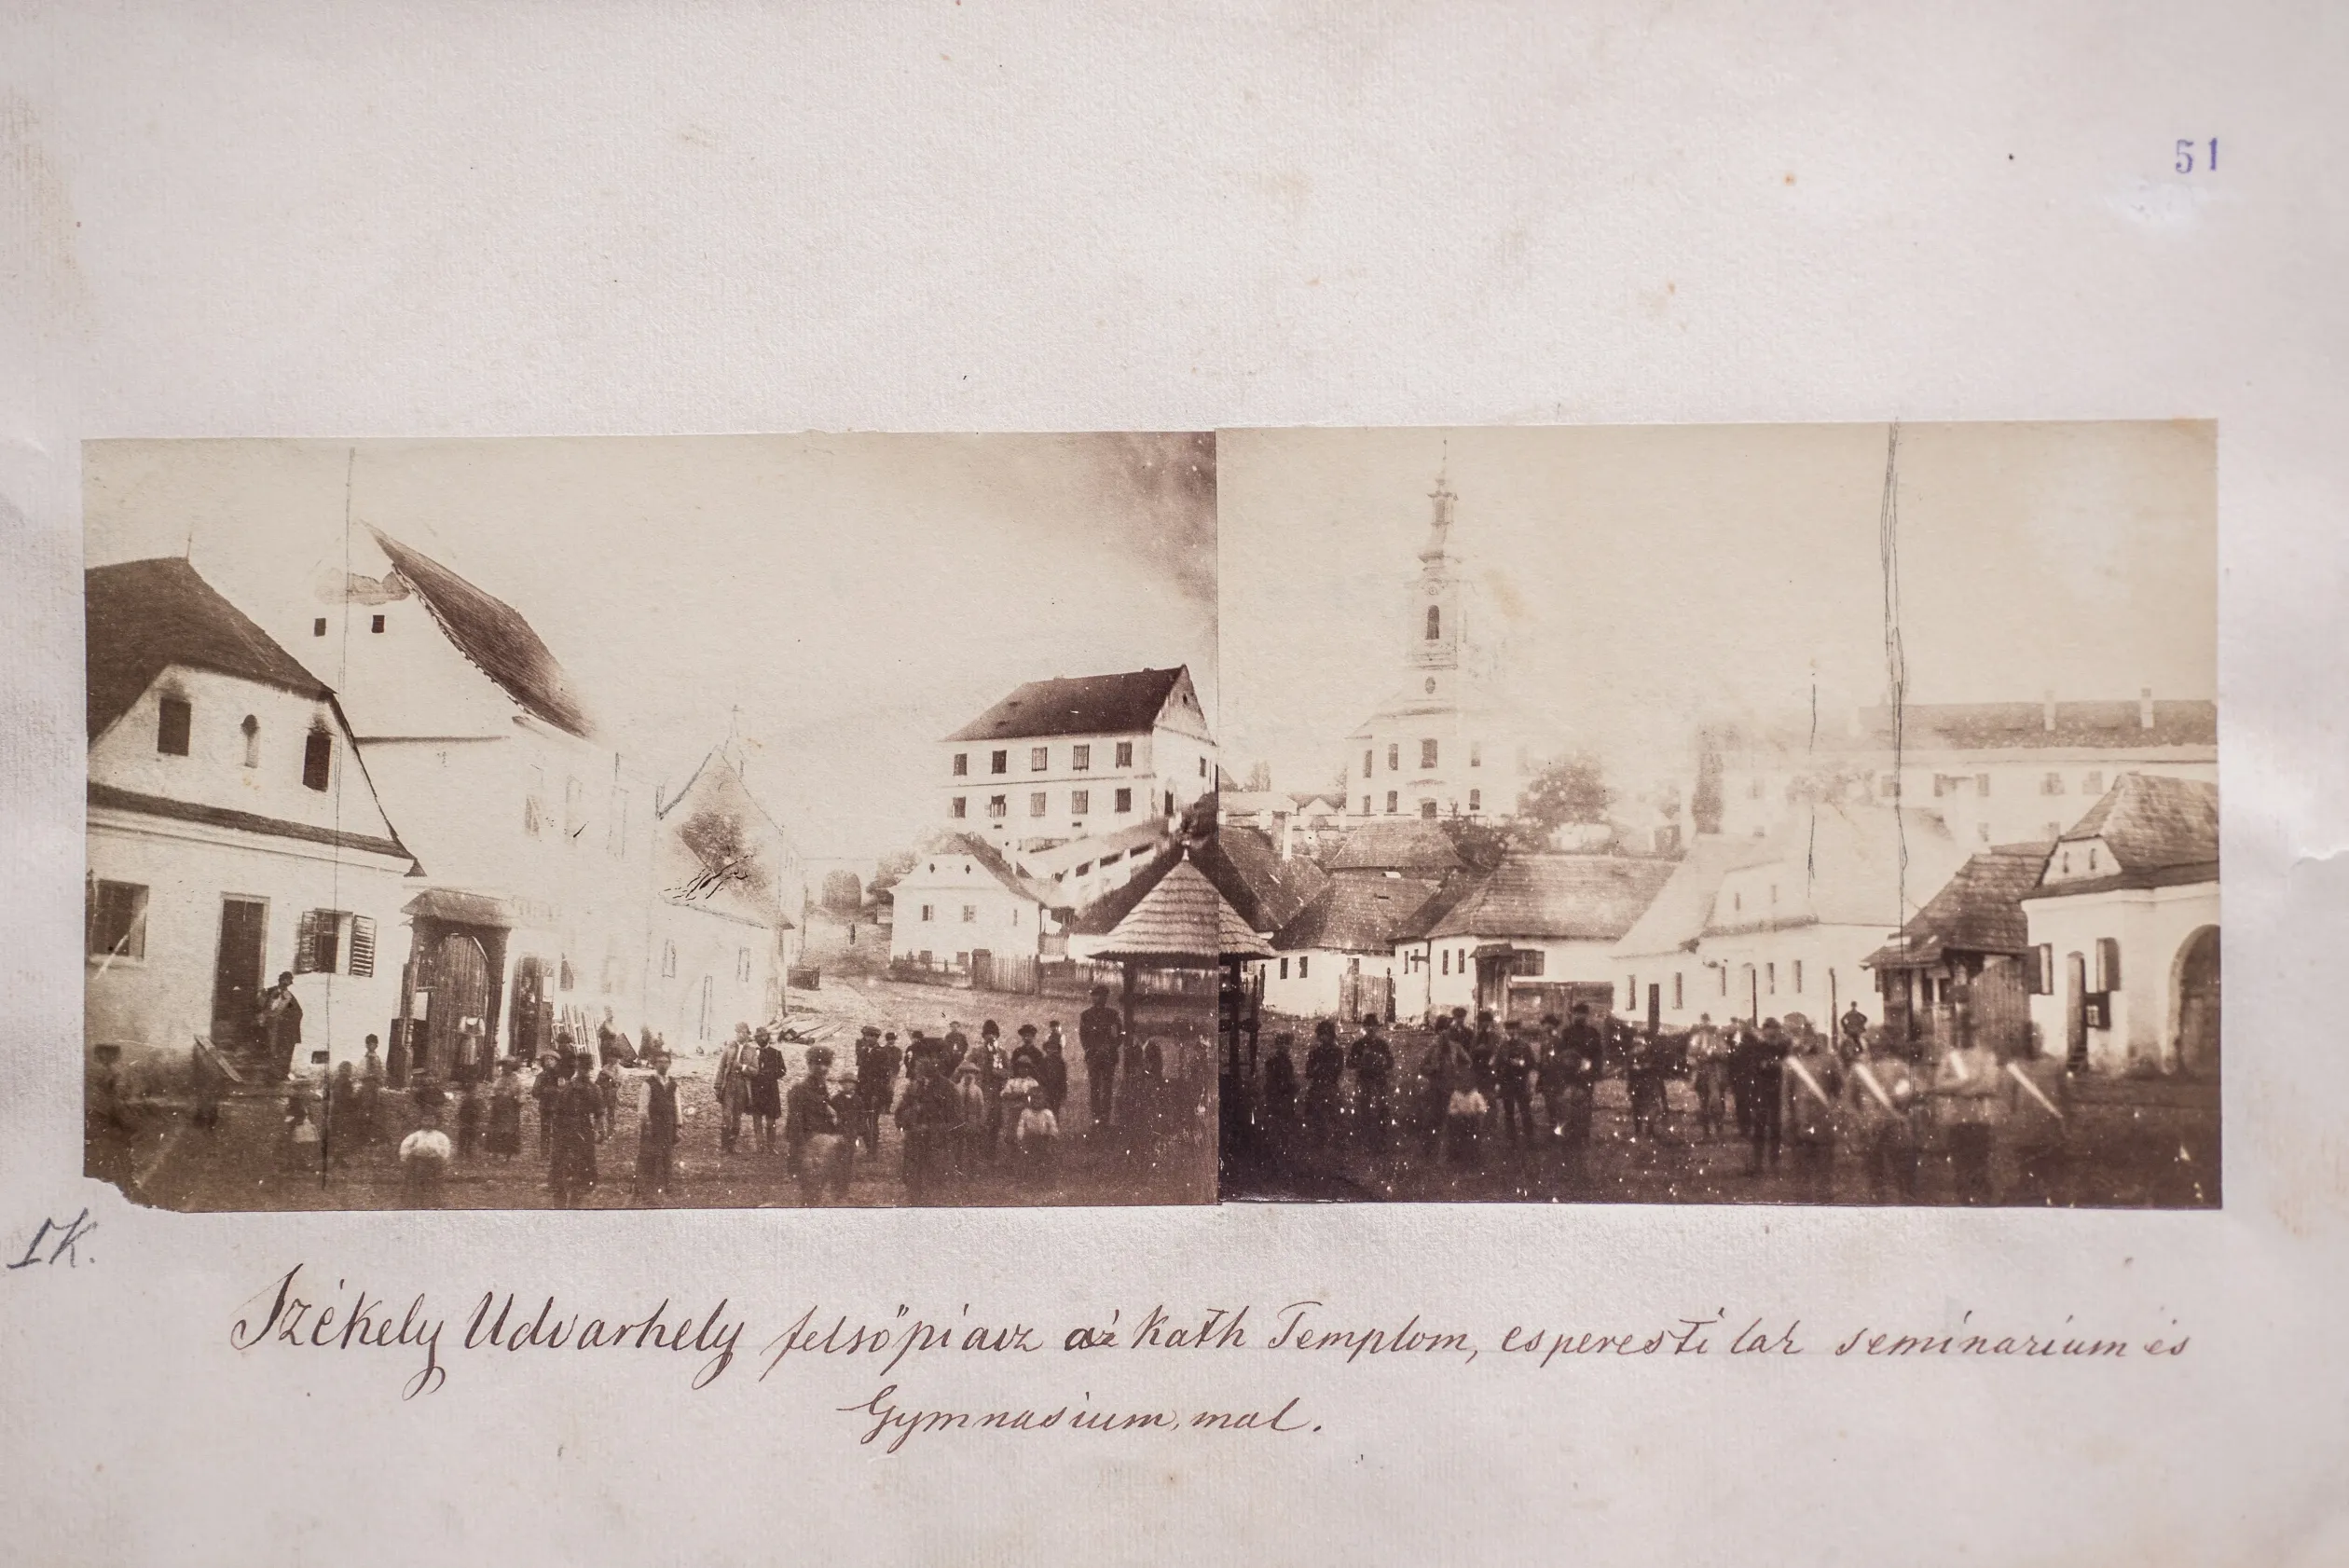 51
IK.
Székely Udvarhely felsőpiacz az Kath Templom, esperesti lak seminarium és
Gymnasium, mal.